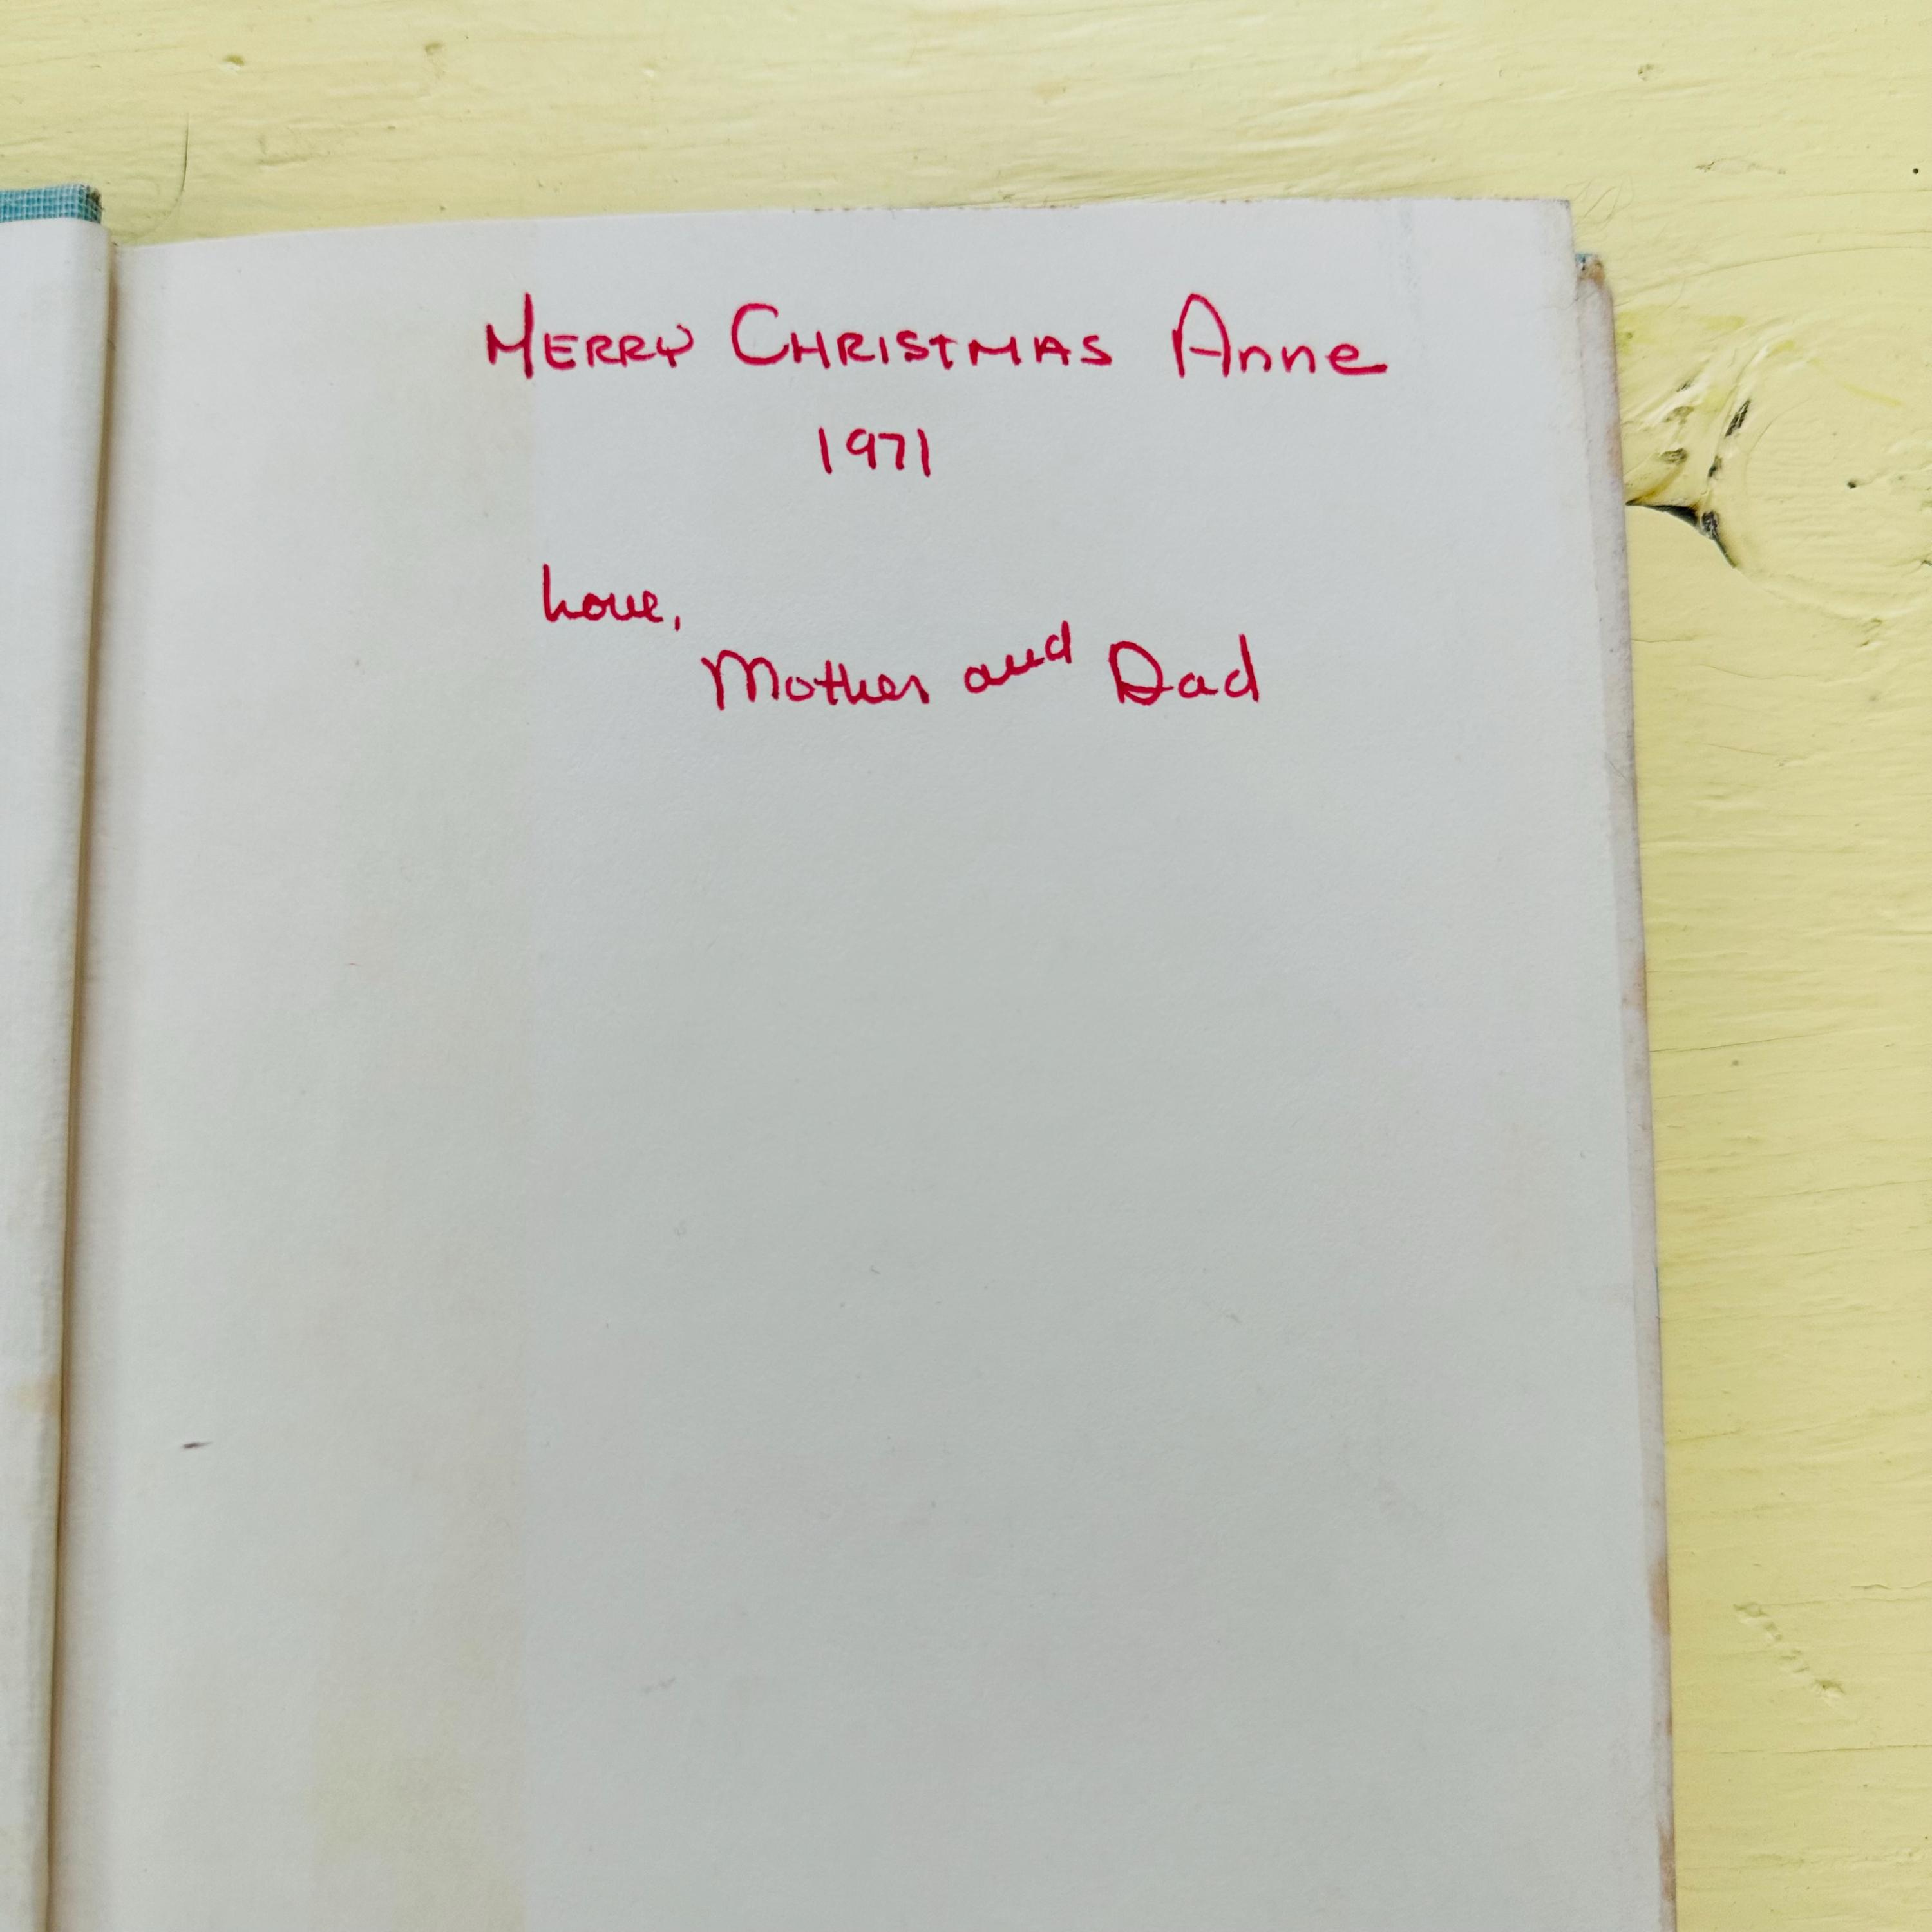 MERRY CHRISTMAS Anne
1971
Love,
Mother and Dad